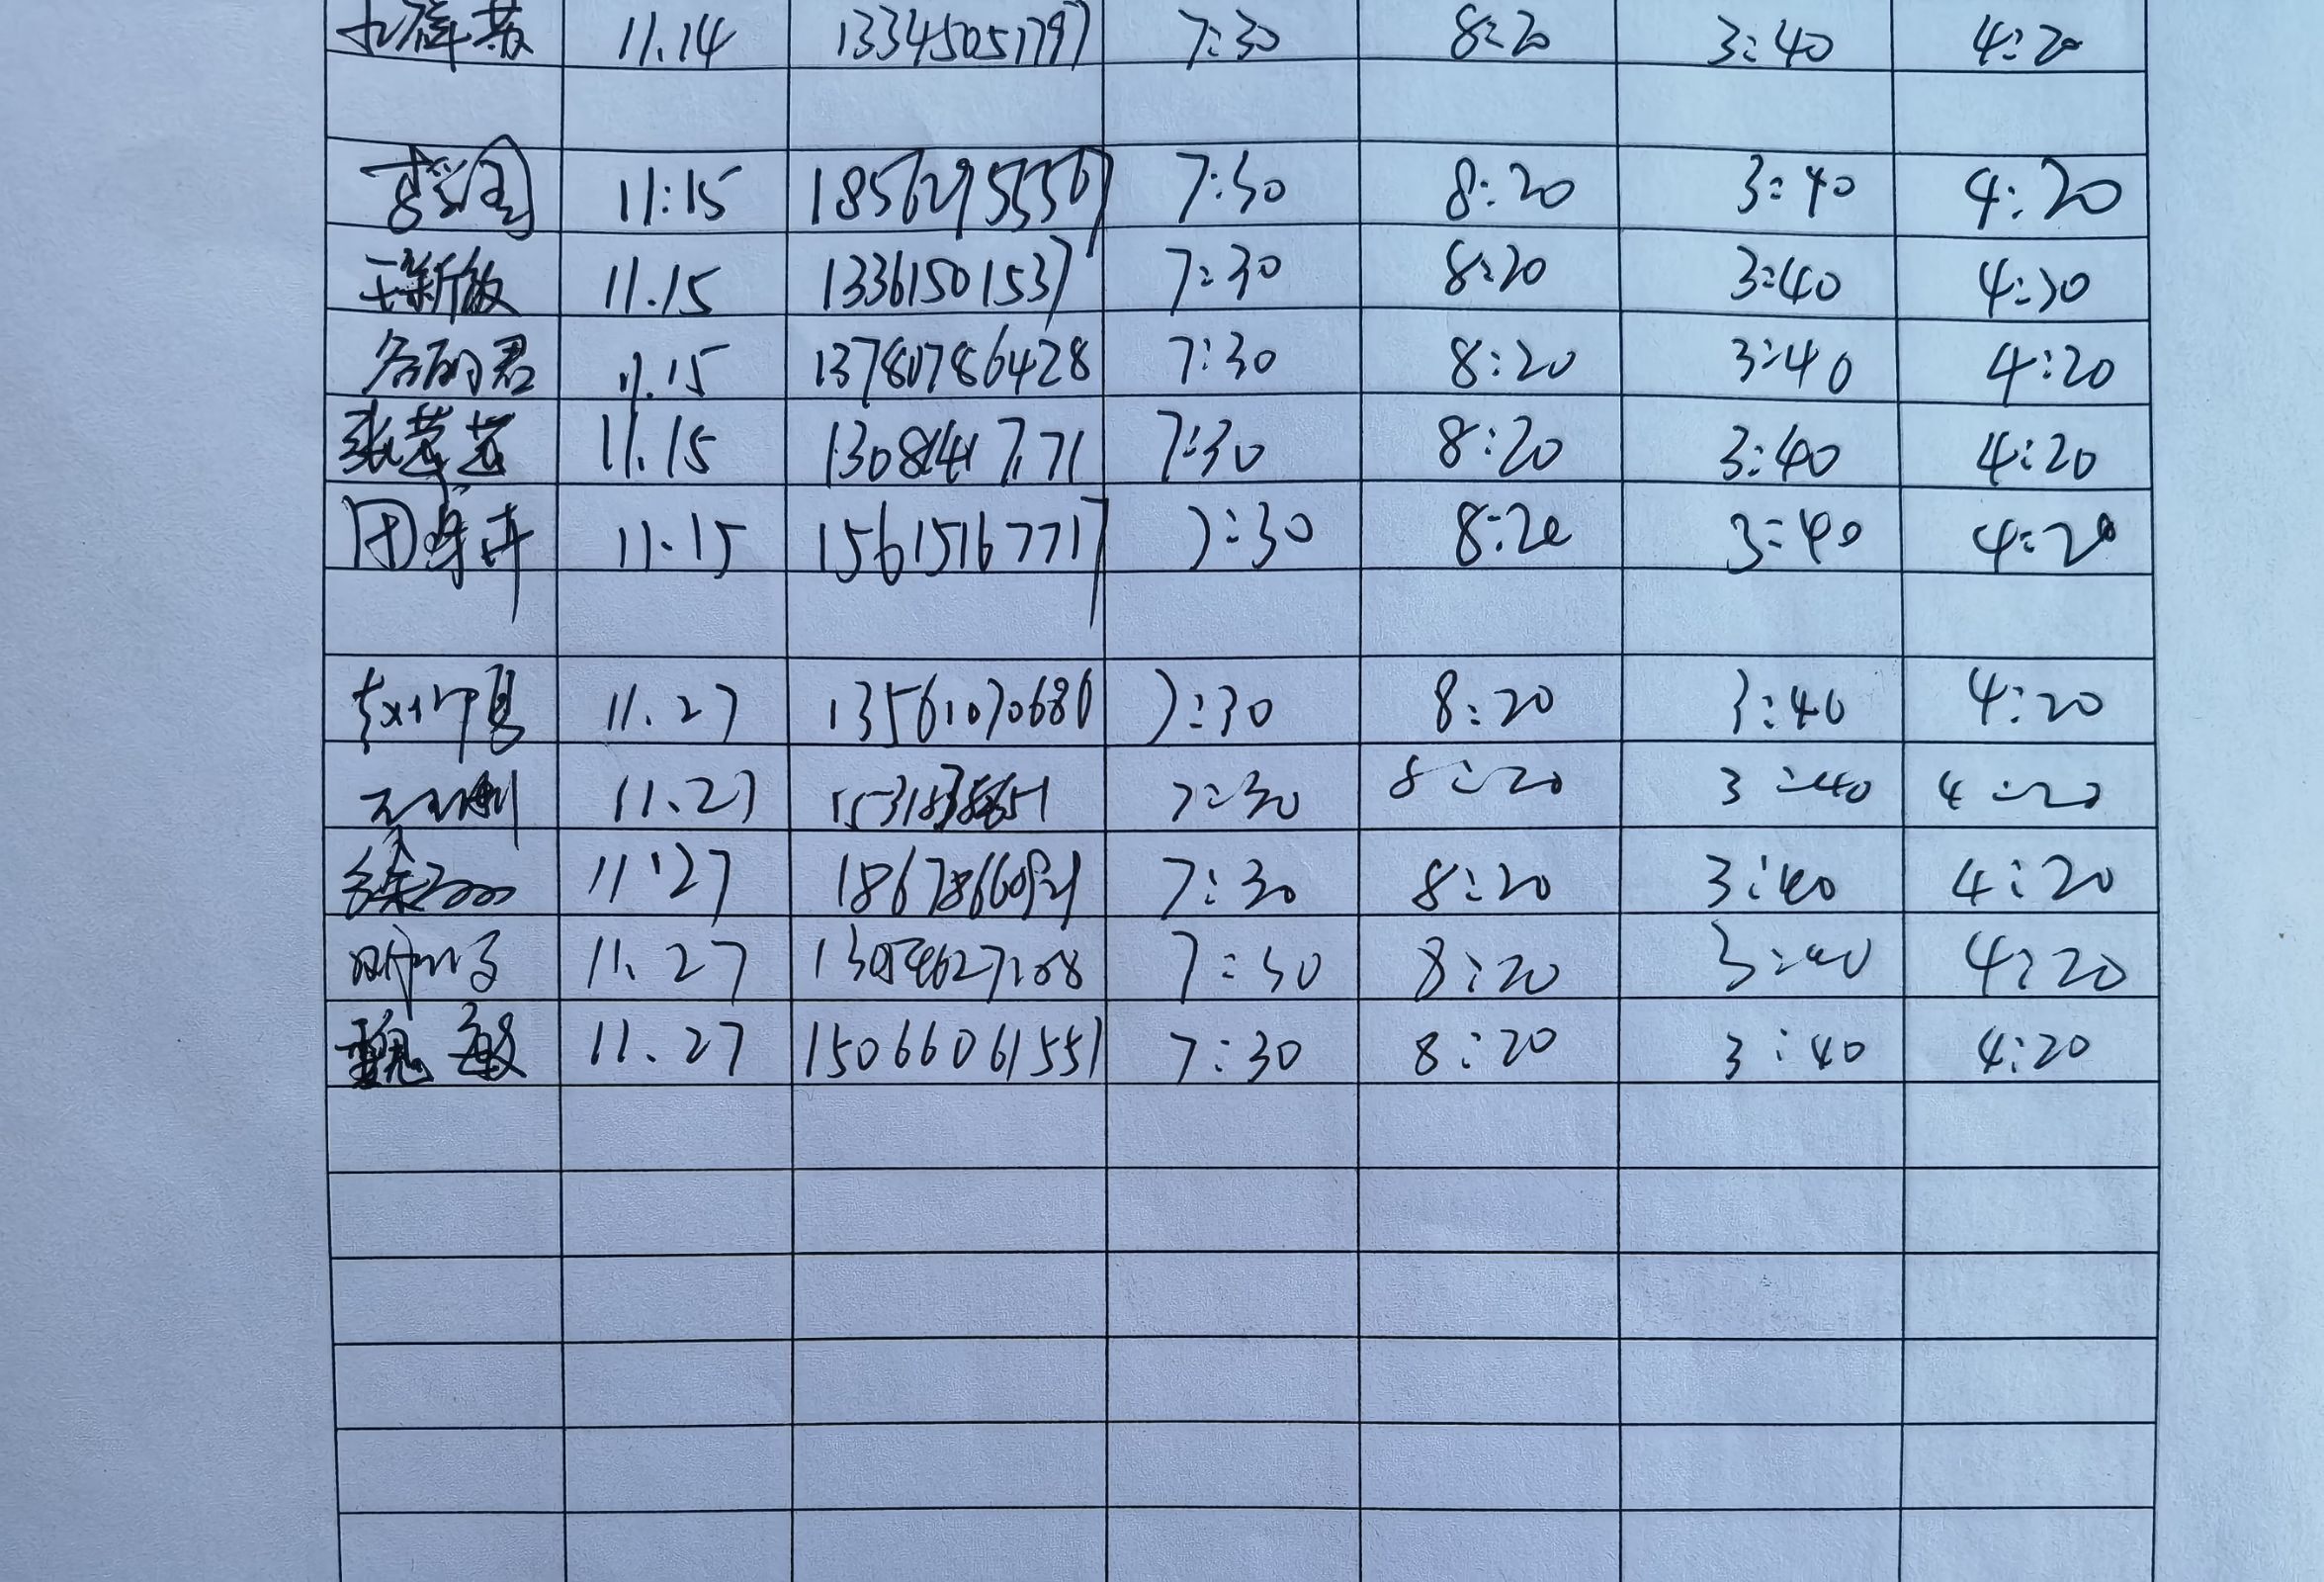 11.14 13345051797 7:30 8:20 3:40 4:20
11:15 7:30 8:20 3:40 4:20
王新敏 11.15 13361501537 7:30 8:20 3:40 4:20
君 11.15 13780786428 7:30 8:20 3:40 4:20
张 11.15 7:30 8:20 3:40 4:20
田 11.15 15615167717 7:30 8:20 3:40 4:20
11.27 7:30 8:20 3:40 4:20
11.27 7:30 8:20 3:40 4:20
徐 11.27 7:30 8:20 3:40 4:20
11.27 7:30 8:20 3:40 4:20
魏敏 11.27 15066061551 7:30 8:20 3:40 4:20